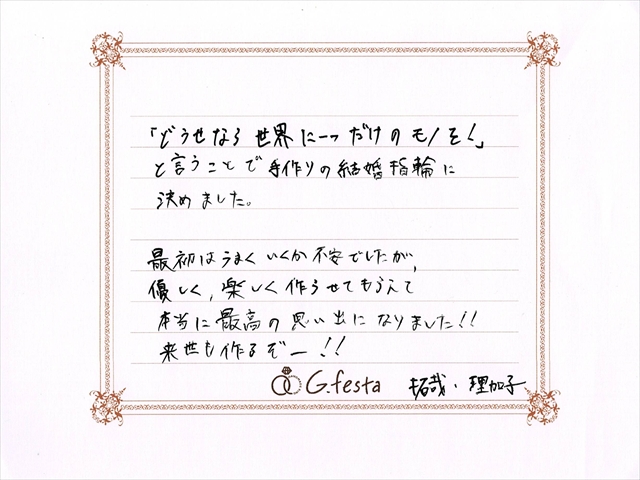 「どうせなら世界に一つだけのモノを！」
と言うことで手作りの結婚指輪に
決めました。
最初はうまくいくか不安でしたが、
優しく、楽しく作らせてもらえて
本当に最高の思い出になりました！！
来世も作るぞー！！
G.festa
拓哉・理加子